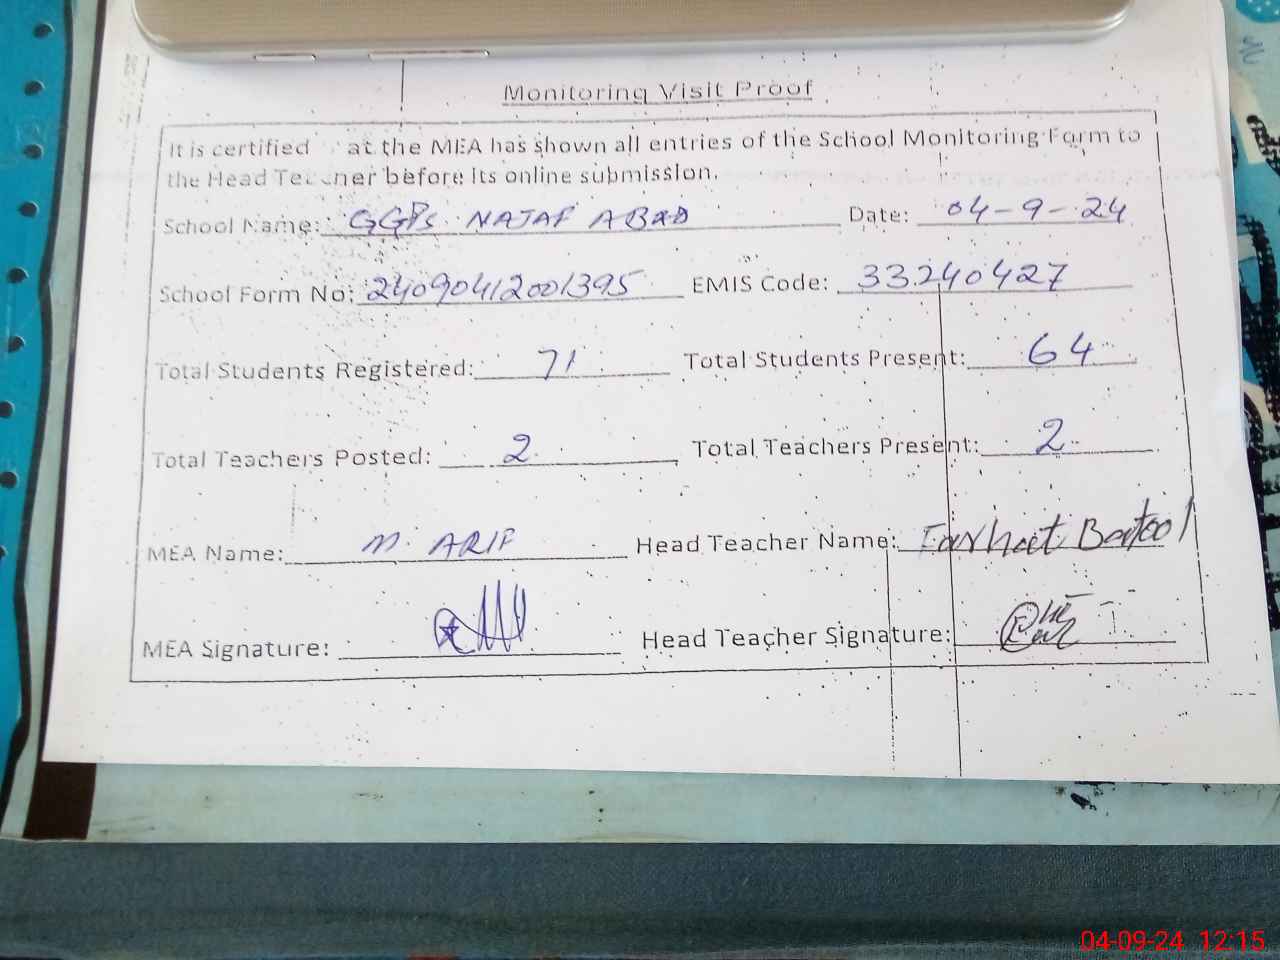 Monitoring Visit Proof
It is certified at the MEA has shown all entries of the School Monitoring Form to
the Head Teacher before its online submission.
School Name: GGPS NAJAF ABAD Date: 04-9-24
School Form No: 24090412001395 EMIS Code: 33240427
Total Students Registered: 71 Total Students Present: 64
Total Teachers Posted: 2 Total Teachers Present: 2
MEA Name: M. ARIF Head Teacher Name: Farhat Batool
MEA Signature: Head Teacher Signature:
04-09-24 12:15